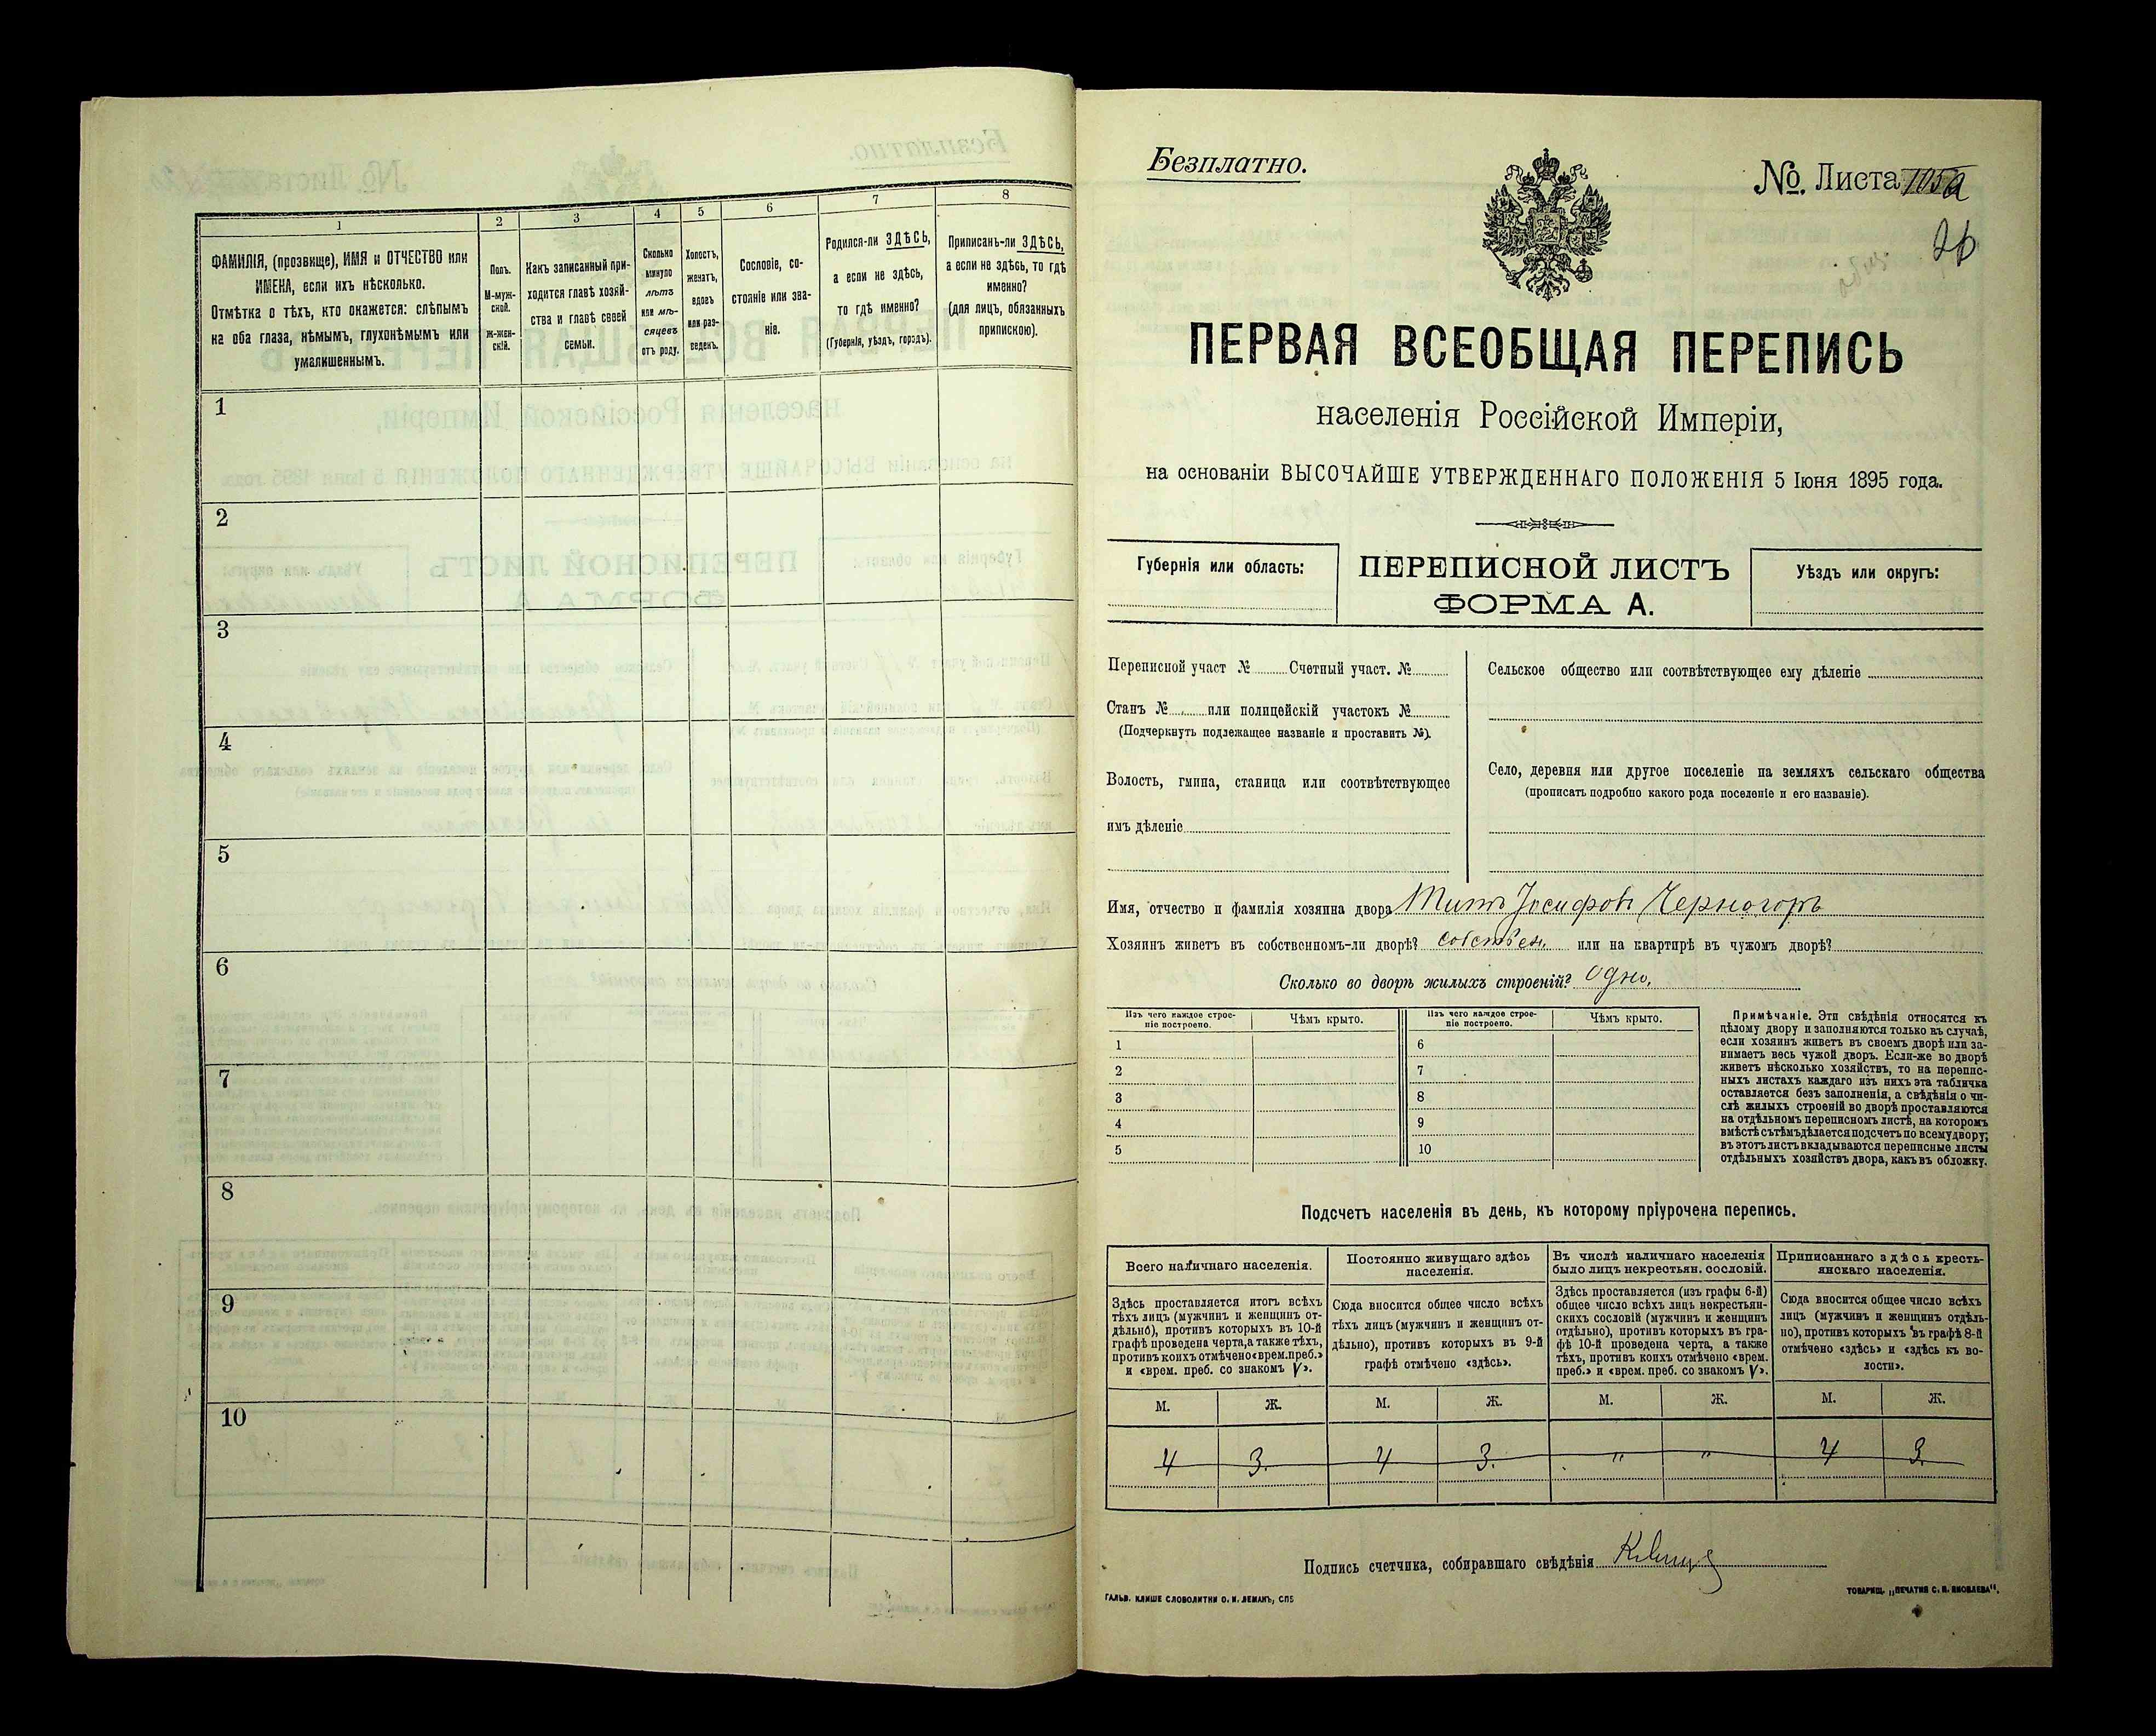 1
2
3
4
5
6
7
8
ФАМИЛІЯ, (прозвище), ИМЯ и ОТЧЕСТВО или
ИМЕНА, если ихъ нѣсколько.
Отмѣтка о тѣхъ, кто окажется: слѣпымъ
на оба глаза, нѣмымъ, глухонѣмымъ или
умалишеннымъ.
Полъ.
М-муж-
ской.
ж-жен-
скій.
Какъ записанный при-
ходится главѣ хозяй-
ства и главѣ своей
семьи.
Сколько
минуло
лѣтъ
или мѣ-
сяцевъ
отъ роду.
Холостъ,
женатъ,
вдовъ
или раз-
веденъ.
Сословіе, со-
стояніе или зва-
ніе.
Родился-ли ЗДѢСЬ,
а если не здѣсь,
то гдѣ именно?
(Губернія, уѣздъ, городъ).
Приписанъ-ли ЗДѢСЬ,
а если не здѣсь, то гдѣ
именно?
(для лицъ, обязанныхъ
припискою).
1
2
3
4
5
6
7
8
9
10
Безплатно.
№. Листа
ПЕРВАЯ ВСЕОБЩАЯ ПЕРЕПИСЬ
населенія Россійской Имперіи,
на основаніи ВЫСОЧАЙШЕ УТВЕРЖДЕННАГО ПОЛОЖЕНІЯ 5 Іюня 1895 года.
Губернія или область:
ПЕРЕПИСНОЙ ЛИСТЪ
ФОРМА А.
Уѣздъ или округъ:
Переписной участ № Счетный участ. №
Станъ № или полицейскій участокъ №
(Подчеркнуть подлежащее названіе и проставить №).
Волость, гмина, станица или соотвѣтствующее
имъ дѣленіе
Сельское общество или соотвѣтствующее ему дѣленіе
Село, деревня или другое поселеніе на земляхъ сельскаго общества
(прописать подробно какого рода поселеніе и его названіе).
Имя, отчество и фамилія хозяина двора Титъ Іосифовъ Черногоръ
Хозяинъ живетъ въ собственномъ-ли дворѣ? собствен. или на квартирѣ въ чужомъ дворѣ?
Сколько во дворѣ жилыхъ строеній? Одно.
Изъ чего каждое строе-
ніе построено.
Чѣмъ крыто.
Изъ чего каждое строе-
ніе построено.
Чѣмъ крыто.
1
2
3
4
5
6
7
8
9
10
Примѣчаніе. Эти свѣдѣнія относятся къ
цѣлому двору и заполняются только въ случаѣ,
если хозяинъ живетъ въ своемъ дворѣ или за-
нимаетъ весь чужой дворъ. Если-же во дворѣ
живетъ нѣсколько хозяйствъ, то на перепис-
ныхъ листахъ каждаго изъ нихъ эта табличка
оставляется безъ заполненія, а свѣдѣнія о чи-
слѣ жилыхъ строеній во дворѣ проставляются
на отдѣльномъ переписномъ листѣ, на которомъ
вмѣстѣ съ тѣмъ дѣлается подсчетъ по всему двору;
въ этотъ листъ вкладываются переписные листы
отдѣльныхъ хозяйствъ двора, какъ въ обложку.
Подсчетъ населенія въ день, къ которому пріурочена перепись.
Всего наличнаго населенія.
Постоянно живущаго здѣсь
населенія.
Въ числѣ наличнаго населенія
было лицъ некрестьян. сословій.
Приписаннаго здѣсь кресть-
янскаго населенія.
Здѣсь проставляется итогъ всѣхъ
тѣхъ лицъ (мужчинъ и женщинъ от-
дѣльно), противъ которыхъ въ 10-й
графѣ проведена черта, а также тѣхъ,
противъ коихъ отмѣчено «врем. преб.»
и «врем. преб. со знакомъ V».
Сюда вносится общее число всѣхъ
тѣхъ лицъ (мужчинъ и женщинъ от-
дѣльно), противъ которыхъ въ 9-й
графѣ отмѣчено «здѣсь».
Здѣсь проставляется (изъ графы 6-й)
общее число всѣхъ лицъ некрестьян-
скихъ сословій (мужчинъ и женщинъ
отдѣльно), противъ которыхъ въ гра-
фѣ 10-й проведена черта, а также
тѣхъ, противъ коихъ отмѣчено «врем.
преб.» и «врем. преб. со знакомъ V».
Сюда вносится общее число всѣхъ
лицъ (мужчинъ и женщинъ отдѣль-
но), противъ которыхъ въ графѣ 8-й
отмѣчено «здѣсь» и «здѣсь къ во-
лости».
М. Ж. М. Ж. М. Ж. М. Ж.
4 3. 4 3. " " 4 3.
Подпись счетчика, собиравшаго свѣдѣнія
ГАЛЬВ. КЛИШЕ СЛОВОЛИТНИ О. И. ЛЕМАНЪ, СПБ
ТОВАРИЩ. „ПЕЧАТНЯ С. П. ЯКОВЛЕВА".